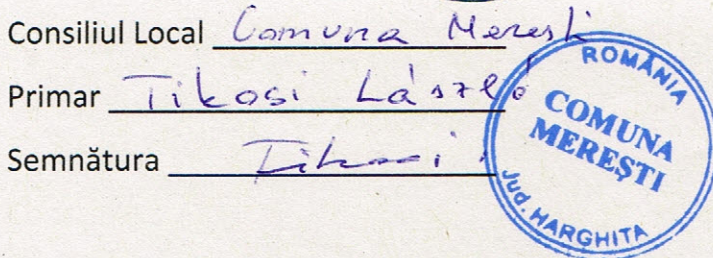 Consiliul Local Comuna Merești
Primar Tikosi László
Semnătura Tikosi
ROMÂNIA
COMUNA
MEREȘTI
Jud. HARGHITA